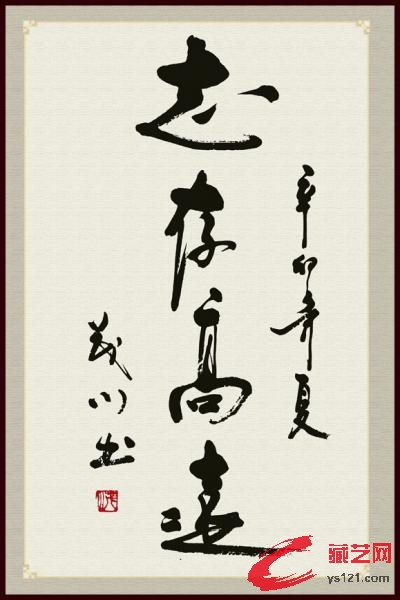 志存高遠
辛卯年夏
茂川书
藏艺网
ys121.com